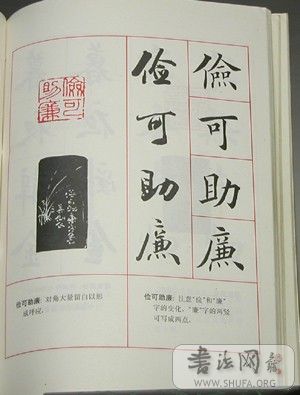 儉可助廉
俭可助廉
儉可
助廉
俭可助廉：对角大量留白以形
成呼应。
俭可助廉：注意“俭”和“廉”
字的变化，“廉”字的两竖
可写成两点。
書法网
WWW.SHUFA.ORG